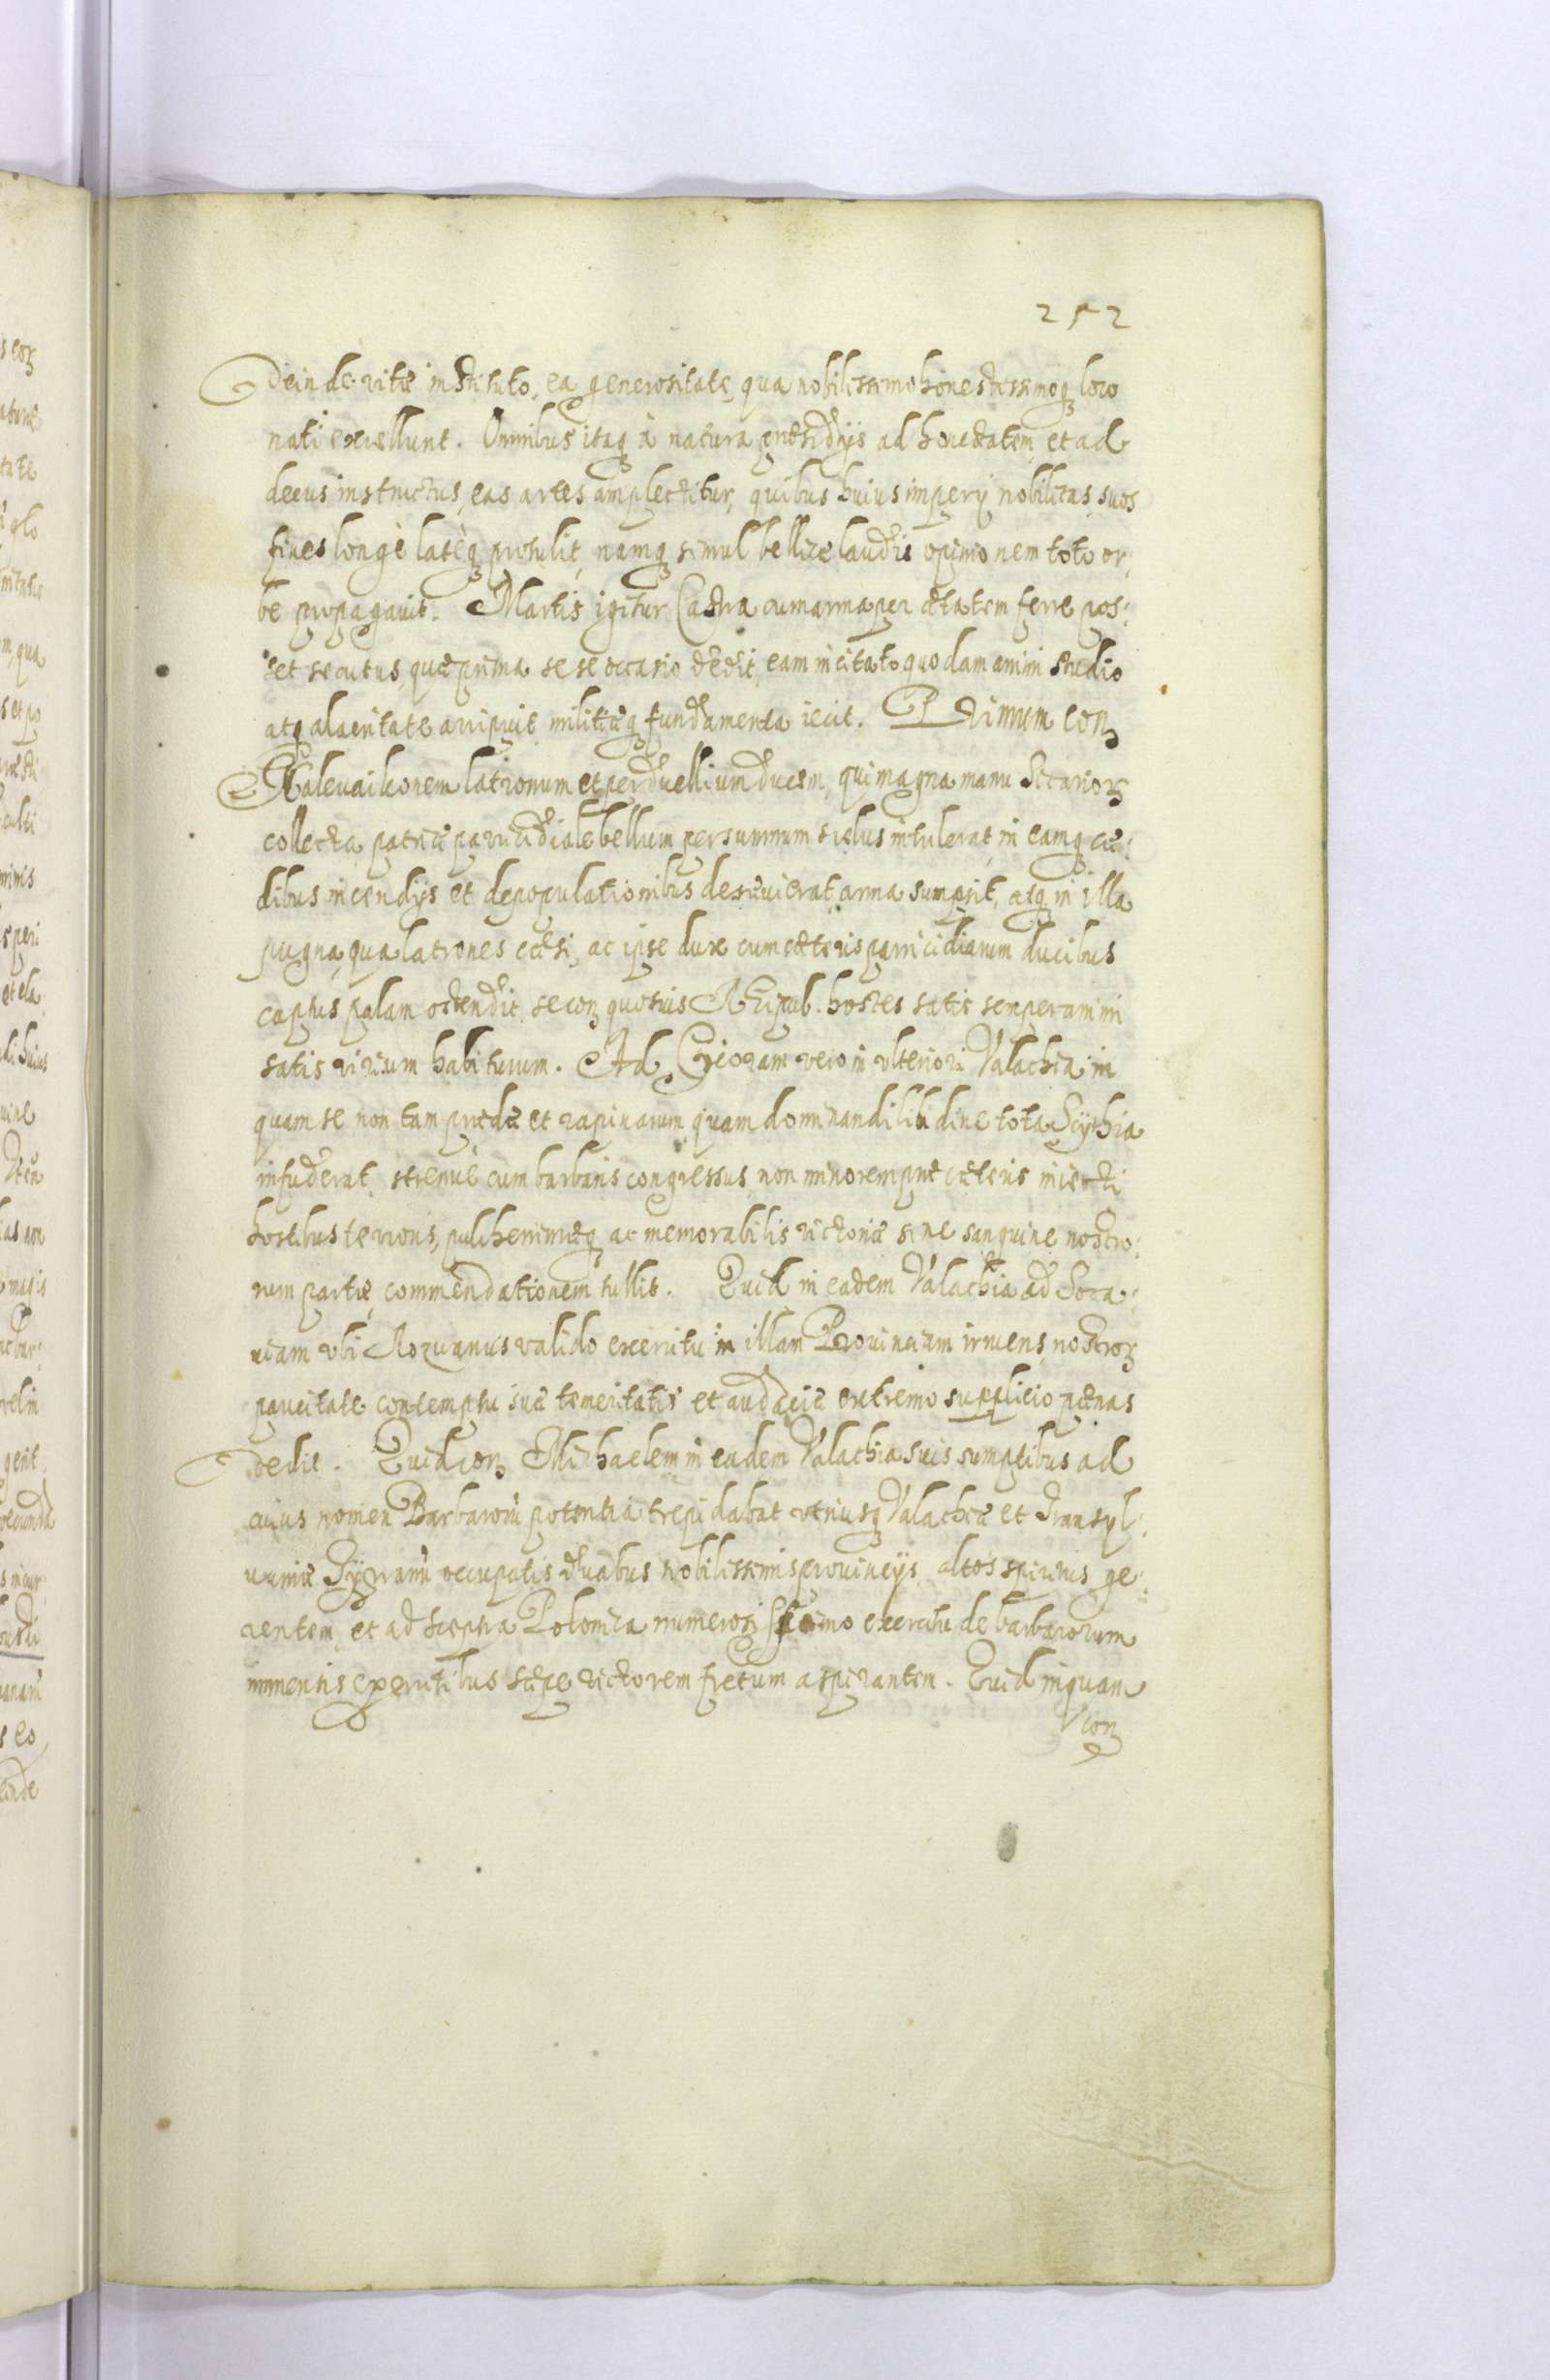 252
deinde vitæ instituto, ea generositate, qua nobilissimo honestissimoq; loco
nati excellunt. Omnibus itaq; à natura præsidÿs ad honestatem et ad
decus instructus, eas artes amplectitur, quibus huius imperÿ nobilitas, suos
fines longè latèq; protulit, namq; simul bellicæ laudis opinionem toto or:
be propagauit. Martis igitur Castra cum arma per ætatem ferre pos:
set secutus, quæ prima sese occasio dedit, eam incitato quodam animi studio
atq; alacritate arripuit militiæq; fundamenta iecit. Primum con;
Nalevaikonem latronum et perduellium ducem, qui magna manu Sicarior;
collecta, patriæ parricidiale bellum per summum scelus intulerat, in eamq; cæ:
dibus incendÿs et depopulationibus desævierat, arma sumpsit, atq; in illa
pugna, qua latrones cæsi, ac ipse dux cum cæteris parricidiarum ducibus
captus, palam ostendit, se con; quosuis Reipub. hostes satis semper animi
satis virium habiturum. Ad Cecoram vero in vlteriori Valachia in
quam se non tam prædæ et rapinarum, quam dominandi libidine tota Scÿthia
infuderat, strenuè cum barbaris congressus, non minorem præ cæteris iniecti
hostibus terroris, pulcherrimæq; ac memorabilis victoriæ sine sanguine nostro:
rum partæ, commendationem tullit. Quid in eadem Valachia ad Soca:
uiam vbi Rozuanus valido exercitu in illam Prouinciam irruens, nostror;
paucitate contemptu suæ temeritatis et audaciæ extremo supplicio pœnas
dedit. Quid con; Michaelem in eadem Valachia suis sumptibus ad
cuius nomen Barbaroru potentia trepidabat vtriusq; Valachiæ et Transyl:
uaniæ Tÿrannu occupatis duabus nobilissimis prouincÿs, altos spiritus ge:
rentem, et ad sceptra Polonica numerosissimo exercitu de barbarorum
immensis exercitibus sæpe victorem fretum aspirantem. Quid inquam
con;